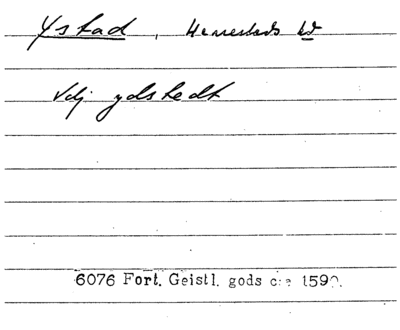 Ystad, Herrestads hd
Vdj ydstedt
6076 Fort. Geistl. gods c:a 1590.